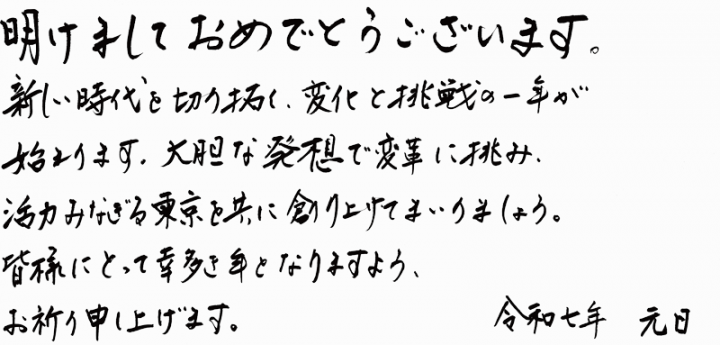 明けましておめでとうございます。
新しい時代を切り拓く、変化と挑戦の一年が
始まります。大胆な発想で変革に挑み、
活力みなぎる東京を共に創り上げてまいりましょう。
皆様にとって幸多き年となりますよう、
お祈り申し上げます。
令和七年 元日